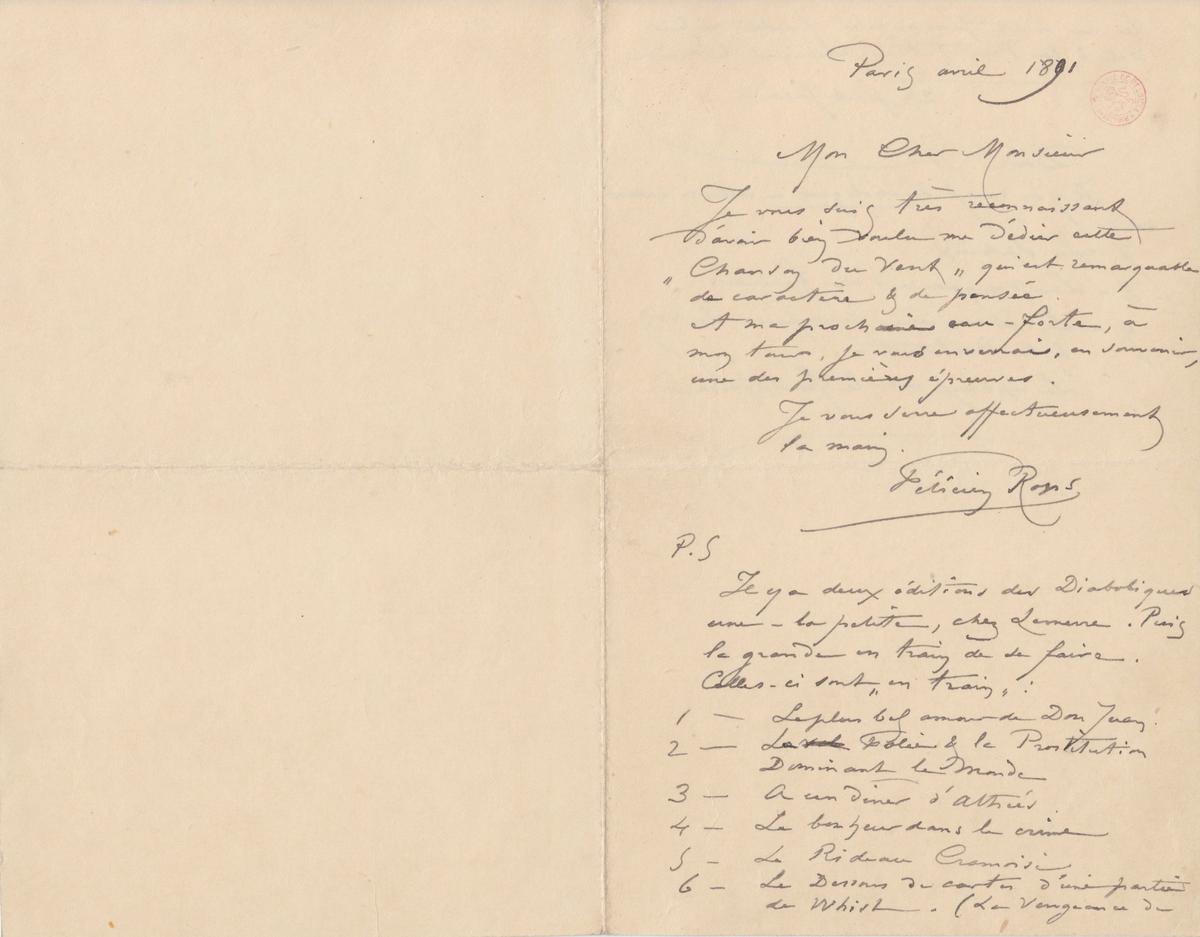 Paris avril 1891
Mon Cher Monsieur
Je vous suis très reconnaissant
d'avoir bien voulu me dédier cette
„ Chanson du Vent „ qui est remarquable
de caractère & de pensée.
A ma prochaine eau-forte, à
mon tour, je vous enverrais, en souvenir,
une des premières épreuves.
Je vous serre affectueusement
la main.
Félicien Rops
P.S
Il y a deux éditions des Diaboliques
une - la petite, chez Lemerre. Puis
la grande en train de se faire.
Celles-ci sont „ en train „ :
1 — Le plus bel amour de Don Juan.
2 — La Folie & la Prostitution
Dominant le Monde
3 — A un dîner d'Athées.
4 — Le bonheur dans le crime
5 - Le Rideau Cramoisi
6 - Le Dessous de cartes d'une partie
de Whist. (La Vengeance de